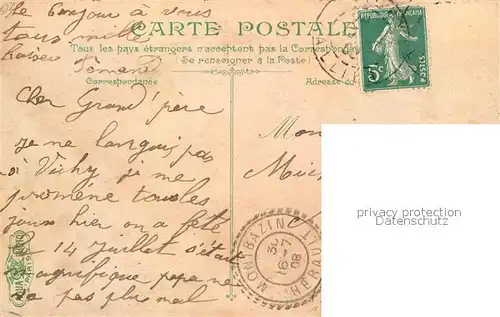 Le bonjour à vous
tous mille
baisers
CARTE POSTALE
Tous les pays étrangers n'acceptent pas la Correspondance
(Se renseigner à la Poste)
Correspondance
Adresse du
RÉPUBLIQUE FRANÇAISE
5c
POSTES
Cher Grand' père
je ne languis pas
à Vichy je me
promène tous les
jours hier on a fêté
14 Juillet s'était
magnifique papa ne
va pas plus mal
Mon
Mic
MONTBAZIN
16-7
08
HÉRAULT
PARIS
privacy protection
privacy protection